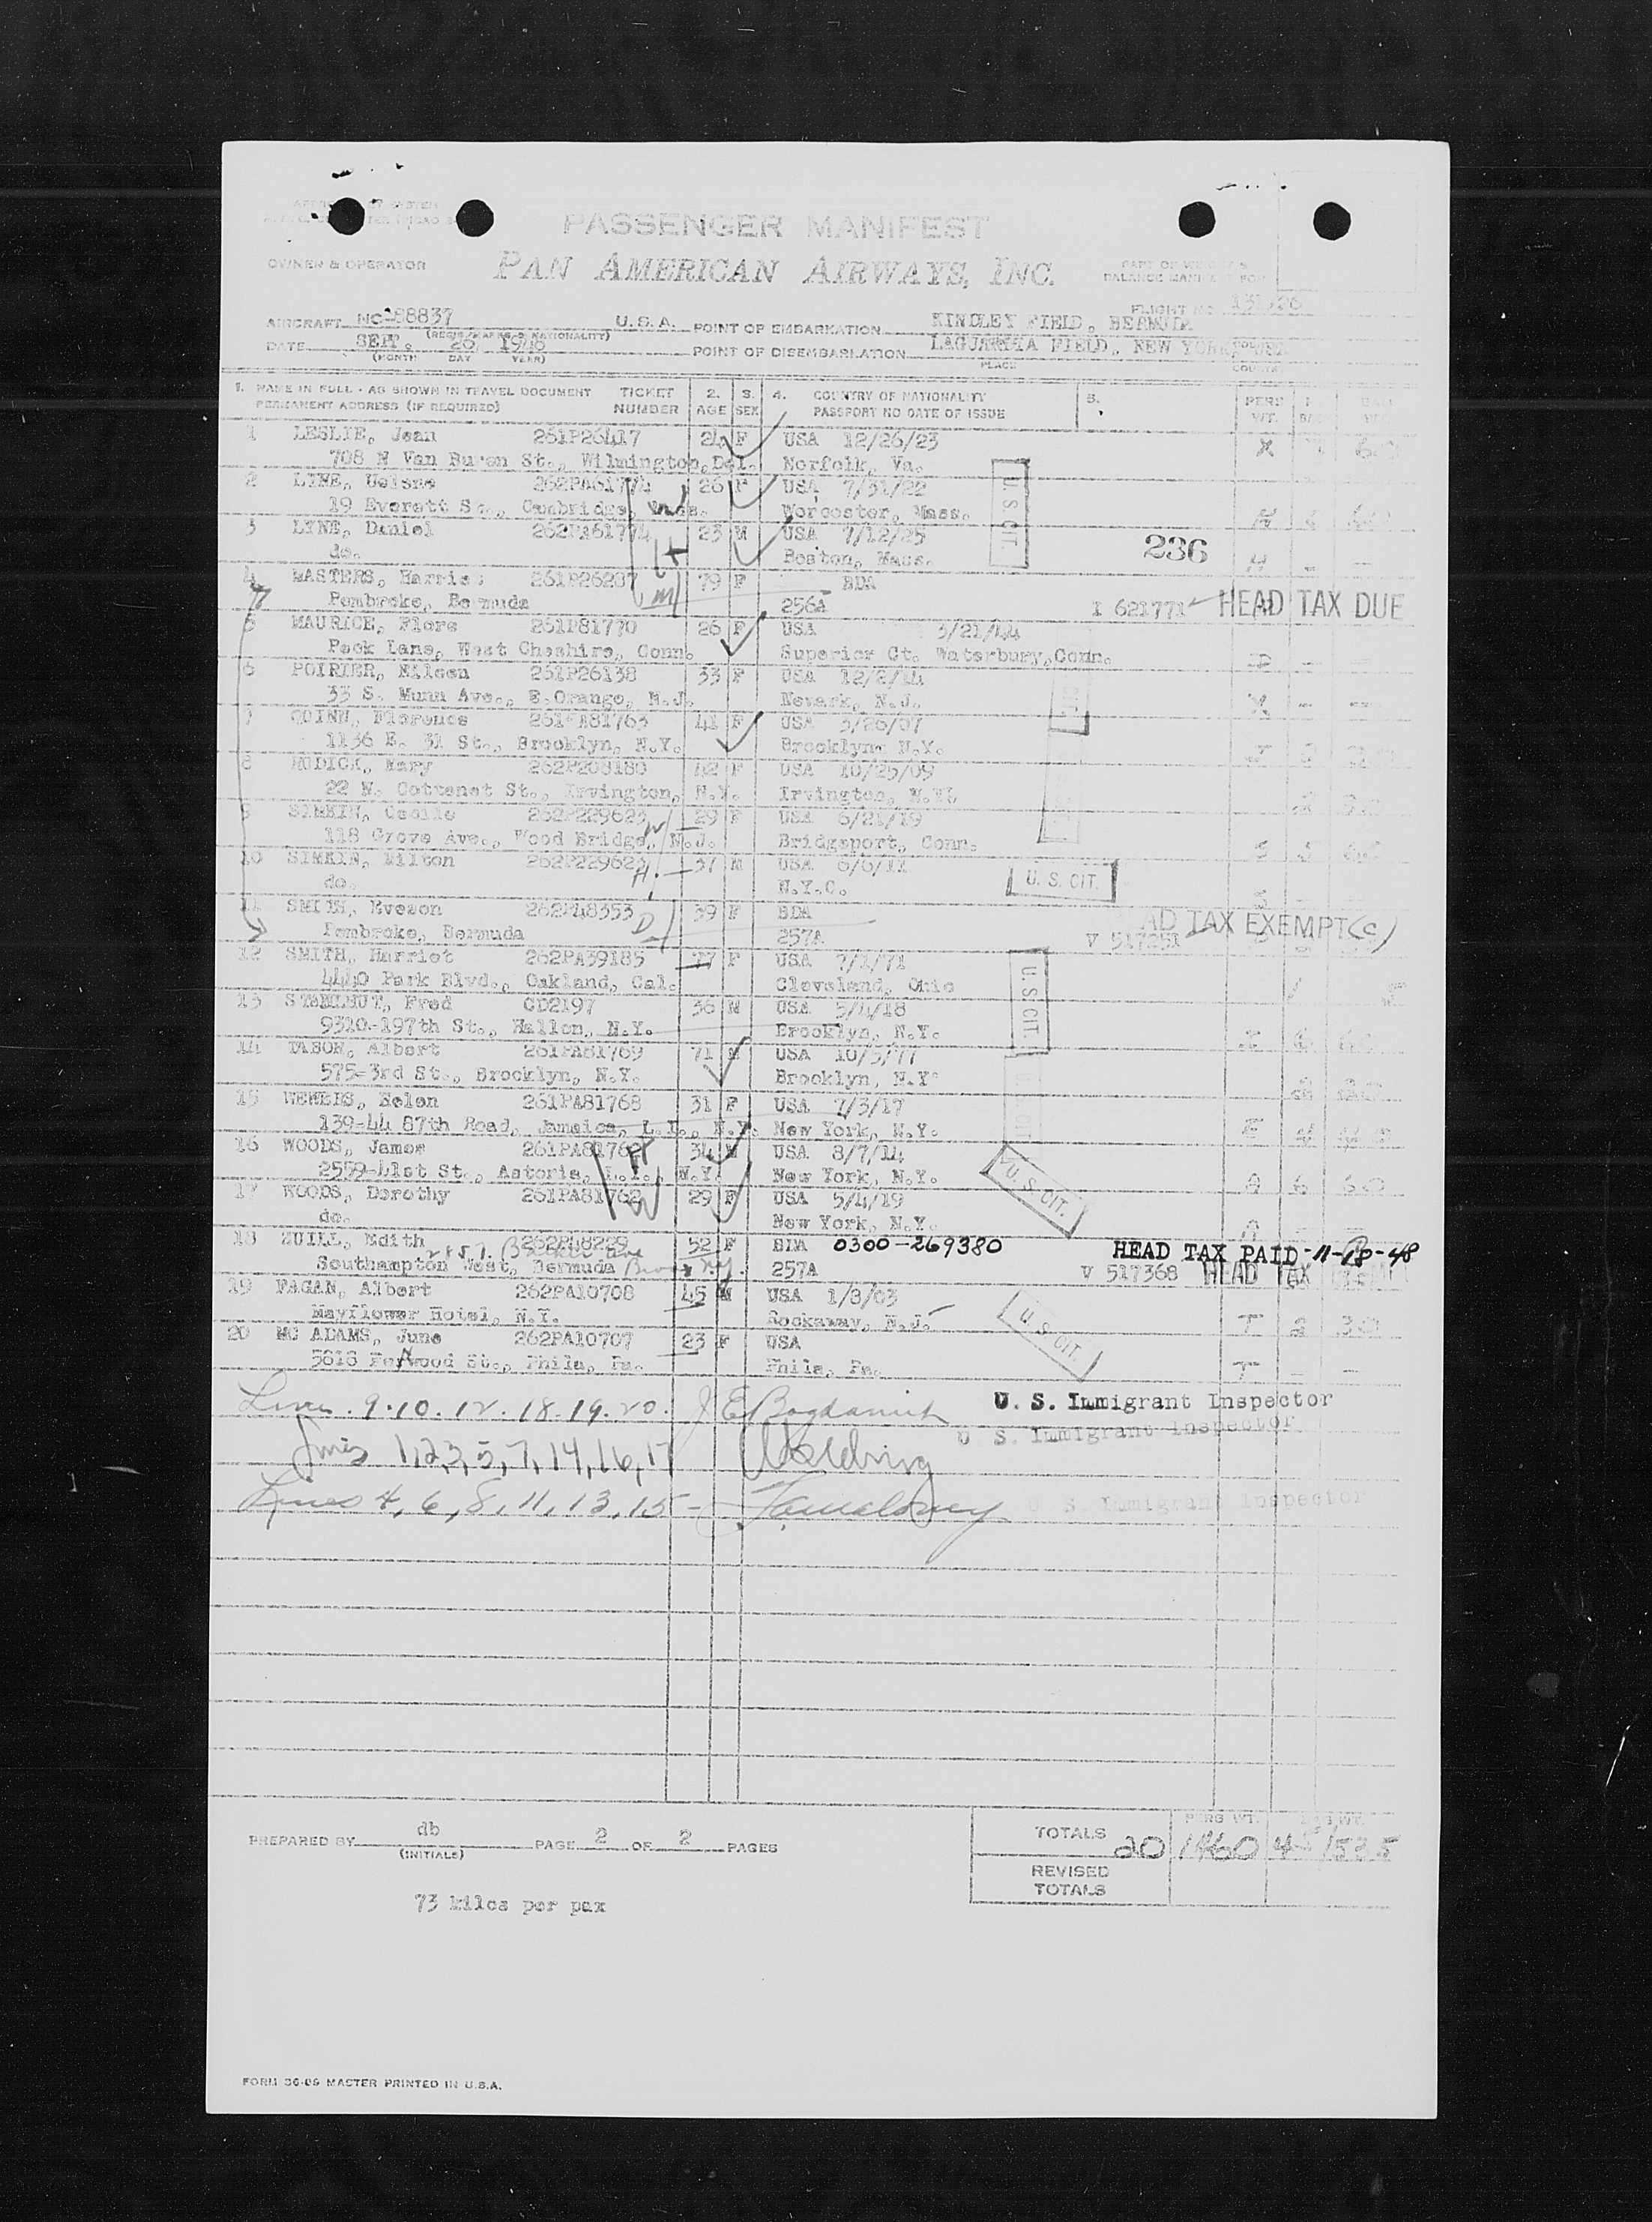 PASSENGER MANIFEST
OWNER & OPERATOR PAN AMERICAN AIRWAYS, INC.
FLIGHT NO.
AIRCRAFT NC-88837 U.S.A. POINT OF EMBARKATION KINDLEY FIELD, BERMUDA
(REGIS. MARKS & NATIONALITY)
DATE SEPT. 26 1948 POINT OF DISEMBARKATION LAGUARDIA FIELD, NEW YORK,
(MONTH DAY YEAR) PLACE COUNTRY
1. NAME IN FULL - AS SHOWN IN TRAVEL DOCUMENT TICKET 2. 3. 4. COUNTRY OF NATIONALITY 5. PERS
PERMANENT ADDRESS (IF REQUIRED) NUMBER AGE SEX PASSPORT NO DATE OF ISSUE WT.
1 LESLIE, Jean 261P26417 24 F USA 12/26/23
708 N Van Buren St., Wilmington, Del. Norfolk, Va.
2 26 F USA 7/31/22
19 Everett St., Cambridge, Mass. Worcester, Mass.
U.S CIT.
3 LYNE, Daniel 262PA61774 23 M USA 7/12/25
do. Boston, Mass.
236
4 MASTERS, 79 F BDA
Pembroke, Bermuda 256A I 621771 HEAD TAX DUE
5 MAURICE, Flora 261P81770 26 F USA 3/21/44
Peck Lane, West Cheshire, Conn. Superior Ct. Waterbury, Conn.
6 POIRIER, Eileen 261P26138 33 F USA 12/2/14
33 S. Munn Ave., E. Orange, N.J. Newark, N.J.
7 QUINN, Florence 261PA81763 41 F USA 5/26/07
1136 E. 31 St., Brooklyn, N.Y. Brooklyn, N.Y.
8 Mary 262P208180 42 F USA 10/25/09
22 N. Cottenet St., Irvington, N.Y. Irvington, N.Y.
9 SIMKIN, Cecile 262P229623 29 F USA 6/21/19
118 Grove Ave., Wood Bridge, N.J. Bridgeport, Conn.
10 SIMKIN, Milton 262P229623 37 M USA 6/6/11
do. N.Y.C. U. S. CIT.
11 SMITH, Eveson 262P48353 39 F BDA
Pembroke, Bermuda 257A V 517251 AD TAX EXEMPT (c)
12 SMITH, Harriet 262PA39185 77 F USA 7/1/71
4440 Park Blvd., Oakland, Cal. Cleveland, Ohio
U.S CIT.
13 Fred CD2197 36 M USA 5/4/18
9310-197th St., Hallon, N.Y. Brooklyn, N.Y.
14 Albert 261PA81769 71 M USA 10/5/77
575-3rd St., Brooklyn, N.Y. Brooklyn, N.Y.
15 Helen 261PA81768 31 F USA 7/3/17
139-44 87th Road, Jamaica, L.I., N.Y. New York, N.Y.
16 WOODS, James 261PA81762 34 M USA 8/7/14
2559-41st St., Astoria, L.I., N.Y. New York, N.Y. U. S. CIT. A 6 60
17 WOODS, Dorothy 261PA81762 29 F USA 5/4/19
do. New York, N.Y.
18 ZUILL, Edith 262P48229 52 F BDA 0300-269380 HEAD TAX PAID-11-18-48
Southampton West, Bermuda 257A V 517368 HEAD TAX
19 FAGAN, Albert 262PA10708 45 M USA 1/8/03
Mayflower Hotel, N.Y. Rockaway, N.J. U S CIT. T 2 30
20 MC ADAMS, June 262PA10707 23 F USA
5818 St., Phila, Pa. Phila, Pa. T
Lines. 9.10.12.18.19.20. J E Bogdanich U. S. Immigrant Inspector
U S. Immigrant Inspector
Lines 1,2,3,5,7,14,16,17
Lines 4,6,8,11,13,15 - U S. Immigrant Inspector
PREPARED BY db PAGE 2 OF 2 PAGES
(INITIALS)
TOTALS 20 1460 45 1535
REVISED TOTALS
73 kilos per pax
FORM 36-06 MASTER PRINTED IN U.S.A.